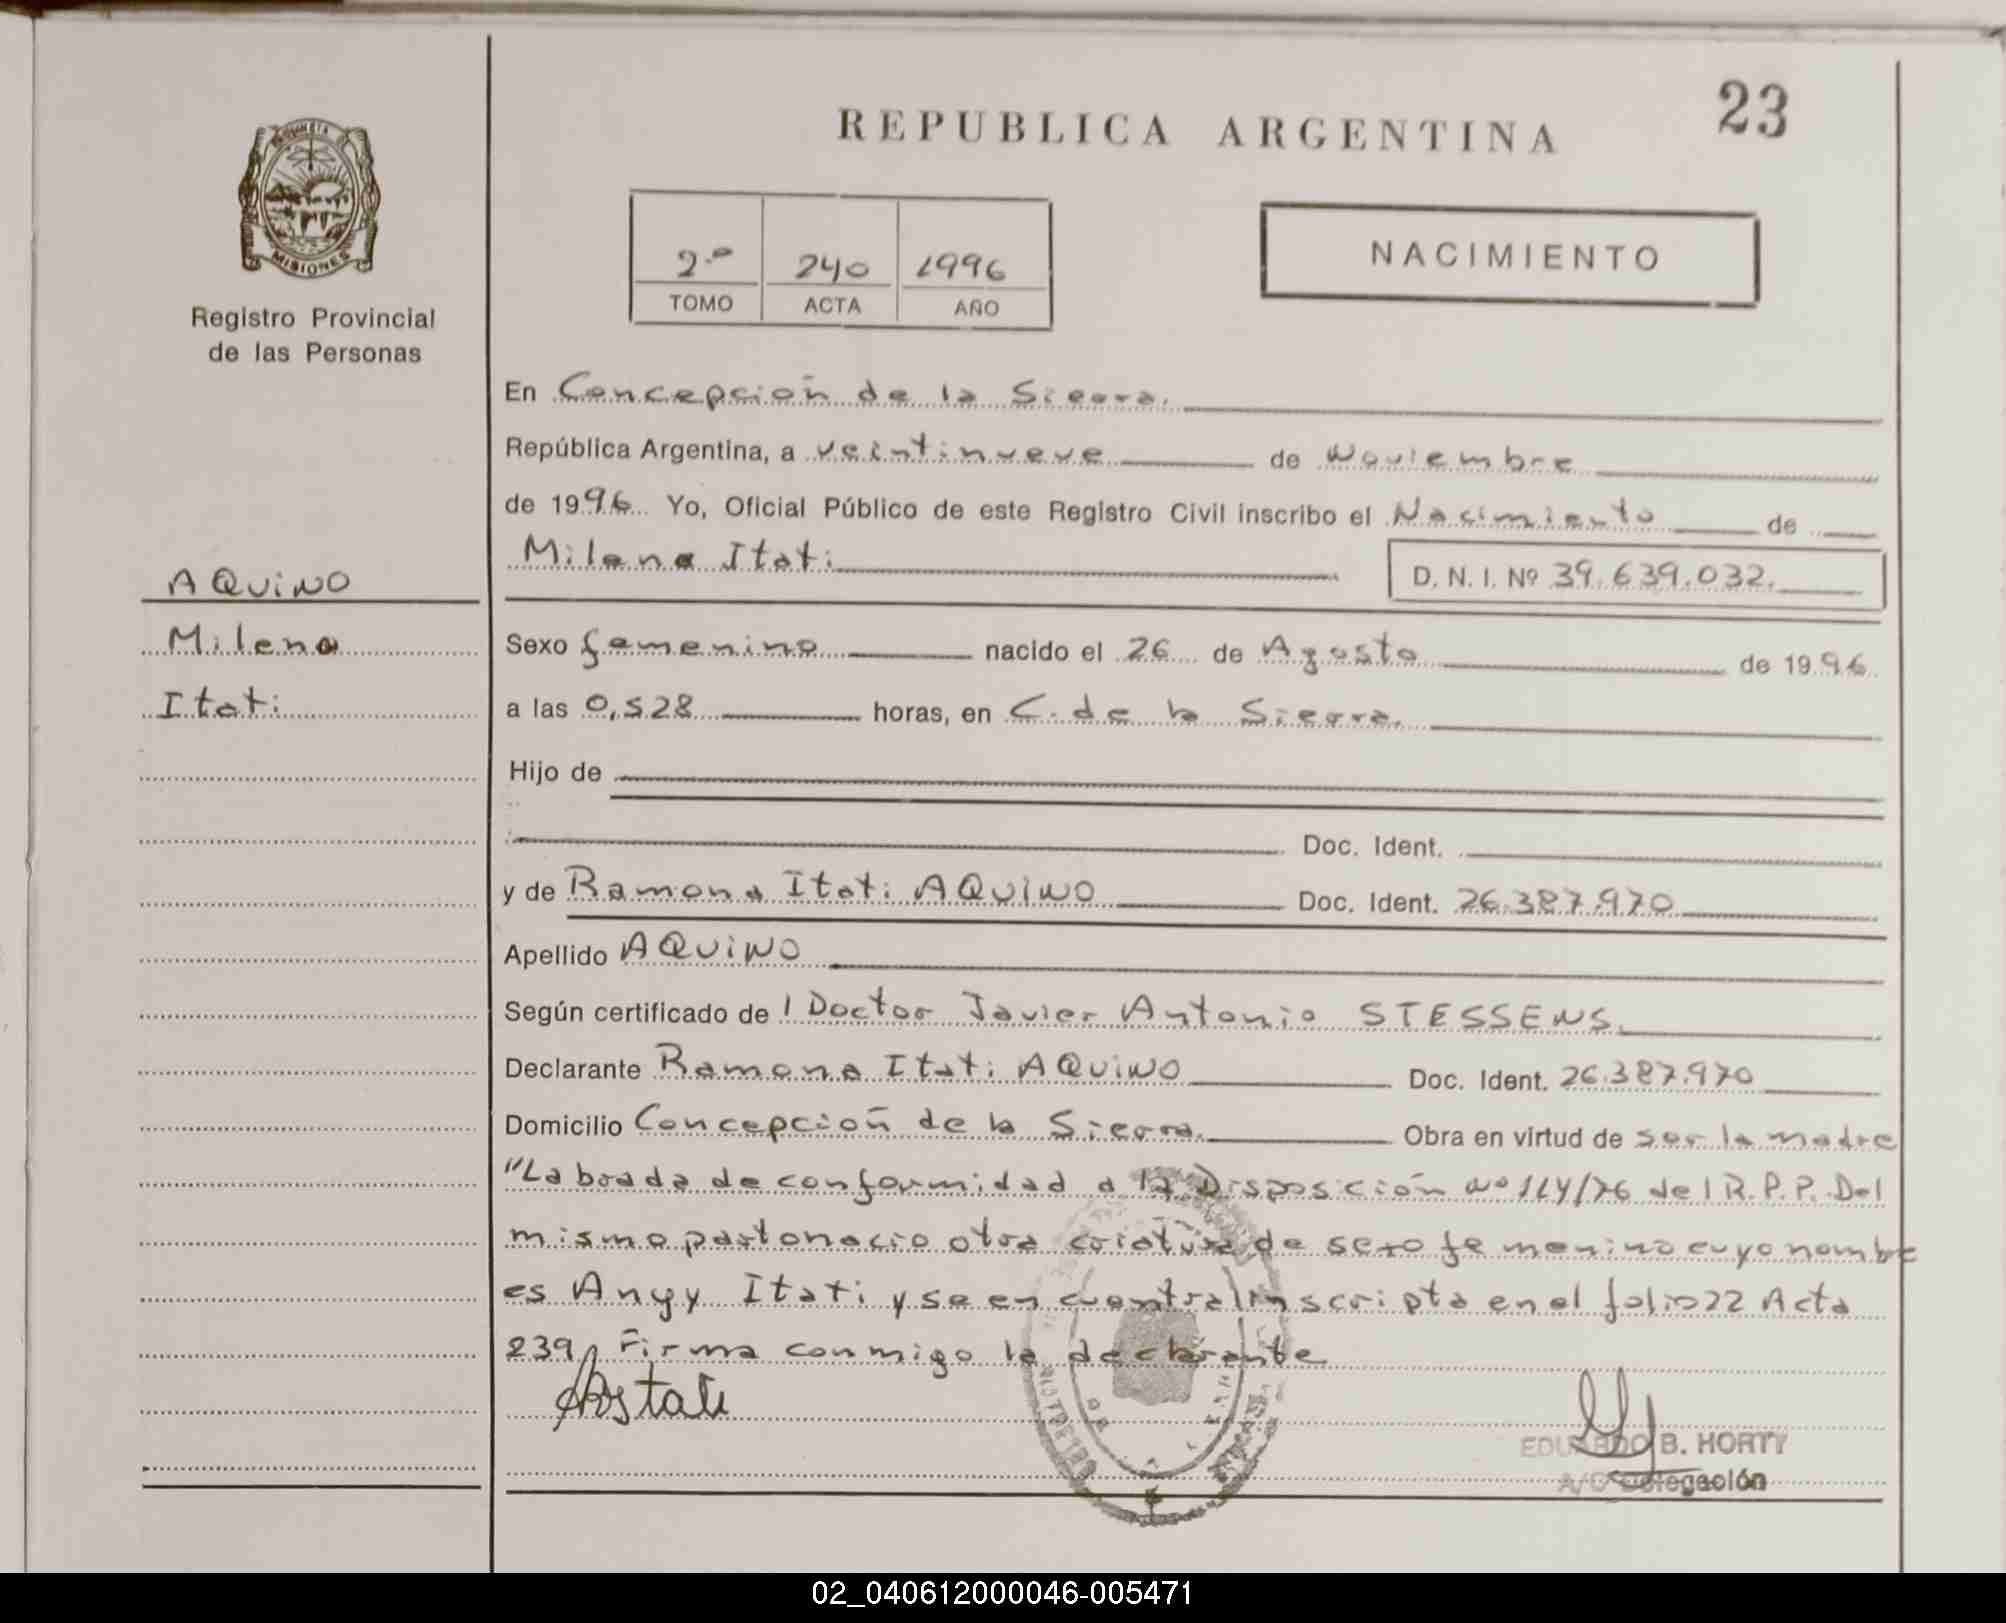 23
REPUBLICA ARGENTINA
MISIONES
Registro Provincial
de las Personas
2º 240 1996
TOMO ACTA AÑO
NACIMIENTO
En Concepción de la Sierra.
República Argentina, a veintinueve de Noviembre
de 1996 Yo, Oficial Público de este Registro Civil inscribo el Nacimiento de
Milena Itati
D. N. I. Nº 39.639.032.
AQUINO
Milena
Itati
Sexo femenino nacido el 26 de Agosto de 1996
a las 0,528 horas, en C. de la Sierra.
Hijo de
Doc. Ident.
y de Ramona Itati AQUINO Doc. Ident. 26.387.970
Apellido AQUINO
Según certificado de l Doctor Javier Antonio STESSENS.
Declarante Ramona Itati AQUINO Doc. Ident. 26.387.970
Domicilio Concepción de la Sierra. Obra en virtud de ser la madre
"Labrada de conformidad a la Disposición Nº 114/76 del R.P.P. Del
mismo parto nacio otra criatura de sexo femenino cuyo nombre
es Angy Itati y se encuentra inscripta en el folio 22 Acta
239, Firma conmigo la declarante
EDUARDO B. HORTY
A/C Delegación
02_040612000046-005471